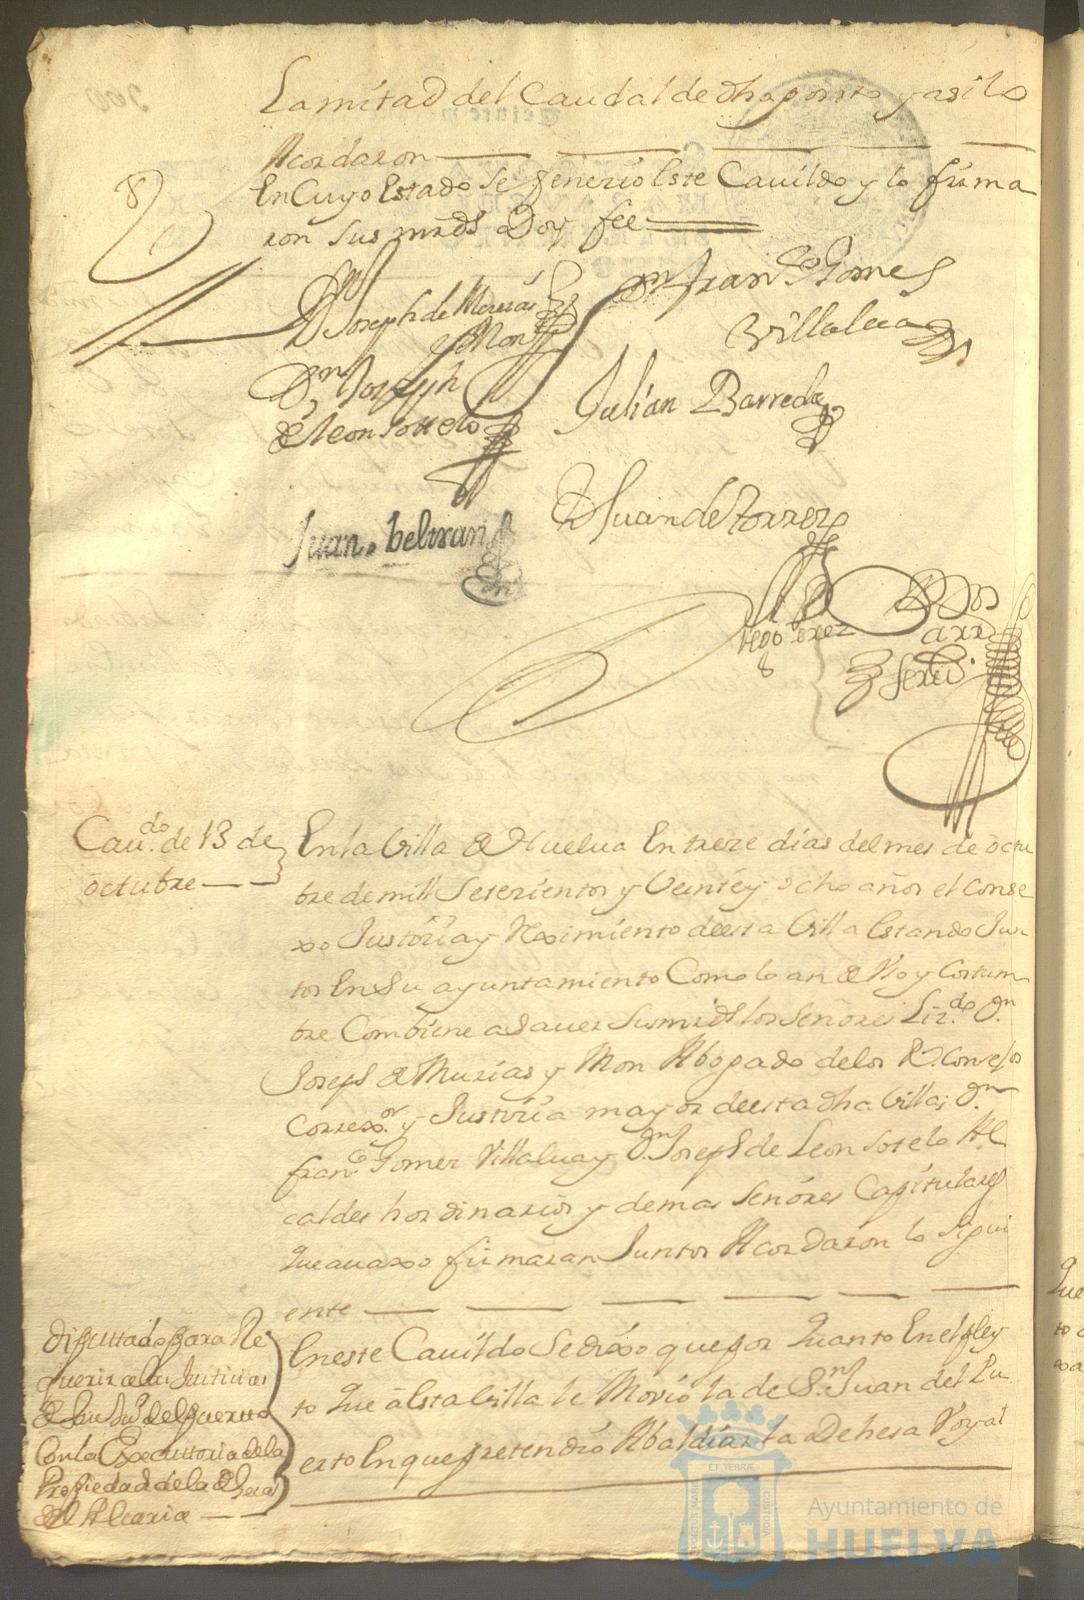 La mitad del Caudal de dho posito y asi lo
Acordaron
En Cuyo Estado se fenerio Este Cauildo y lo firma
ron Sus mrds Doy fee
Dn Joseph de Murias
y Mon
Dn Franco Gomes
Villalua
Dn Joseph
de Leon Sotelo
Julian Barreda
Juan beltran
D Juan de torres
Caudo. de 13 de
octubre
En la Villa de Huelua En treze dias del mes de octu
bre de mill Setezientos y Veinte y ocho años el Conse
xo Justizia y Reximiento de esta Villa Estando Jun
tos En Su ayuntamiento Como lo an de Vso y Costum
bre Combiene a Sauer Sus mrds los Señores Lizdo. Dn.
Joseph de Murias y Mon Abogado de los Rs. Consejos
Correxor. y Justizia mayor de esta dha Villa; Dn
Franco. Gomez Villalua y Dn. Joseph de Leon Sotelo Al
caldes hordinarios y demas Señores Capitulares
Que auaxo firmaran Juntos Acordaron lo Sigui
ente
diputtado para Re
querir a las Justicias
de Sn Jun. del puerto
Con la Executtoria de la
Propiedad de la dhesa
del Alcaria
En este Cauildo Se dixo que por Quanto En el pley
to Que a Esta Villa le Mouio la de Sn. Juan del Pu
erto En que pretendio Abaldiar la Dehesa Voyal
ET TERRÆ
Ayuntamiento de
HUELVA